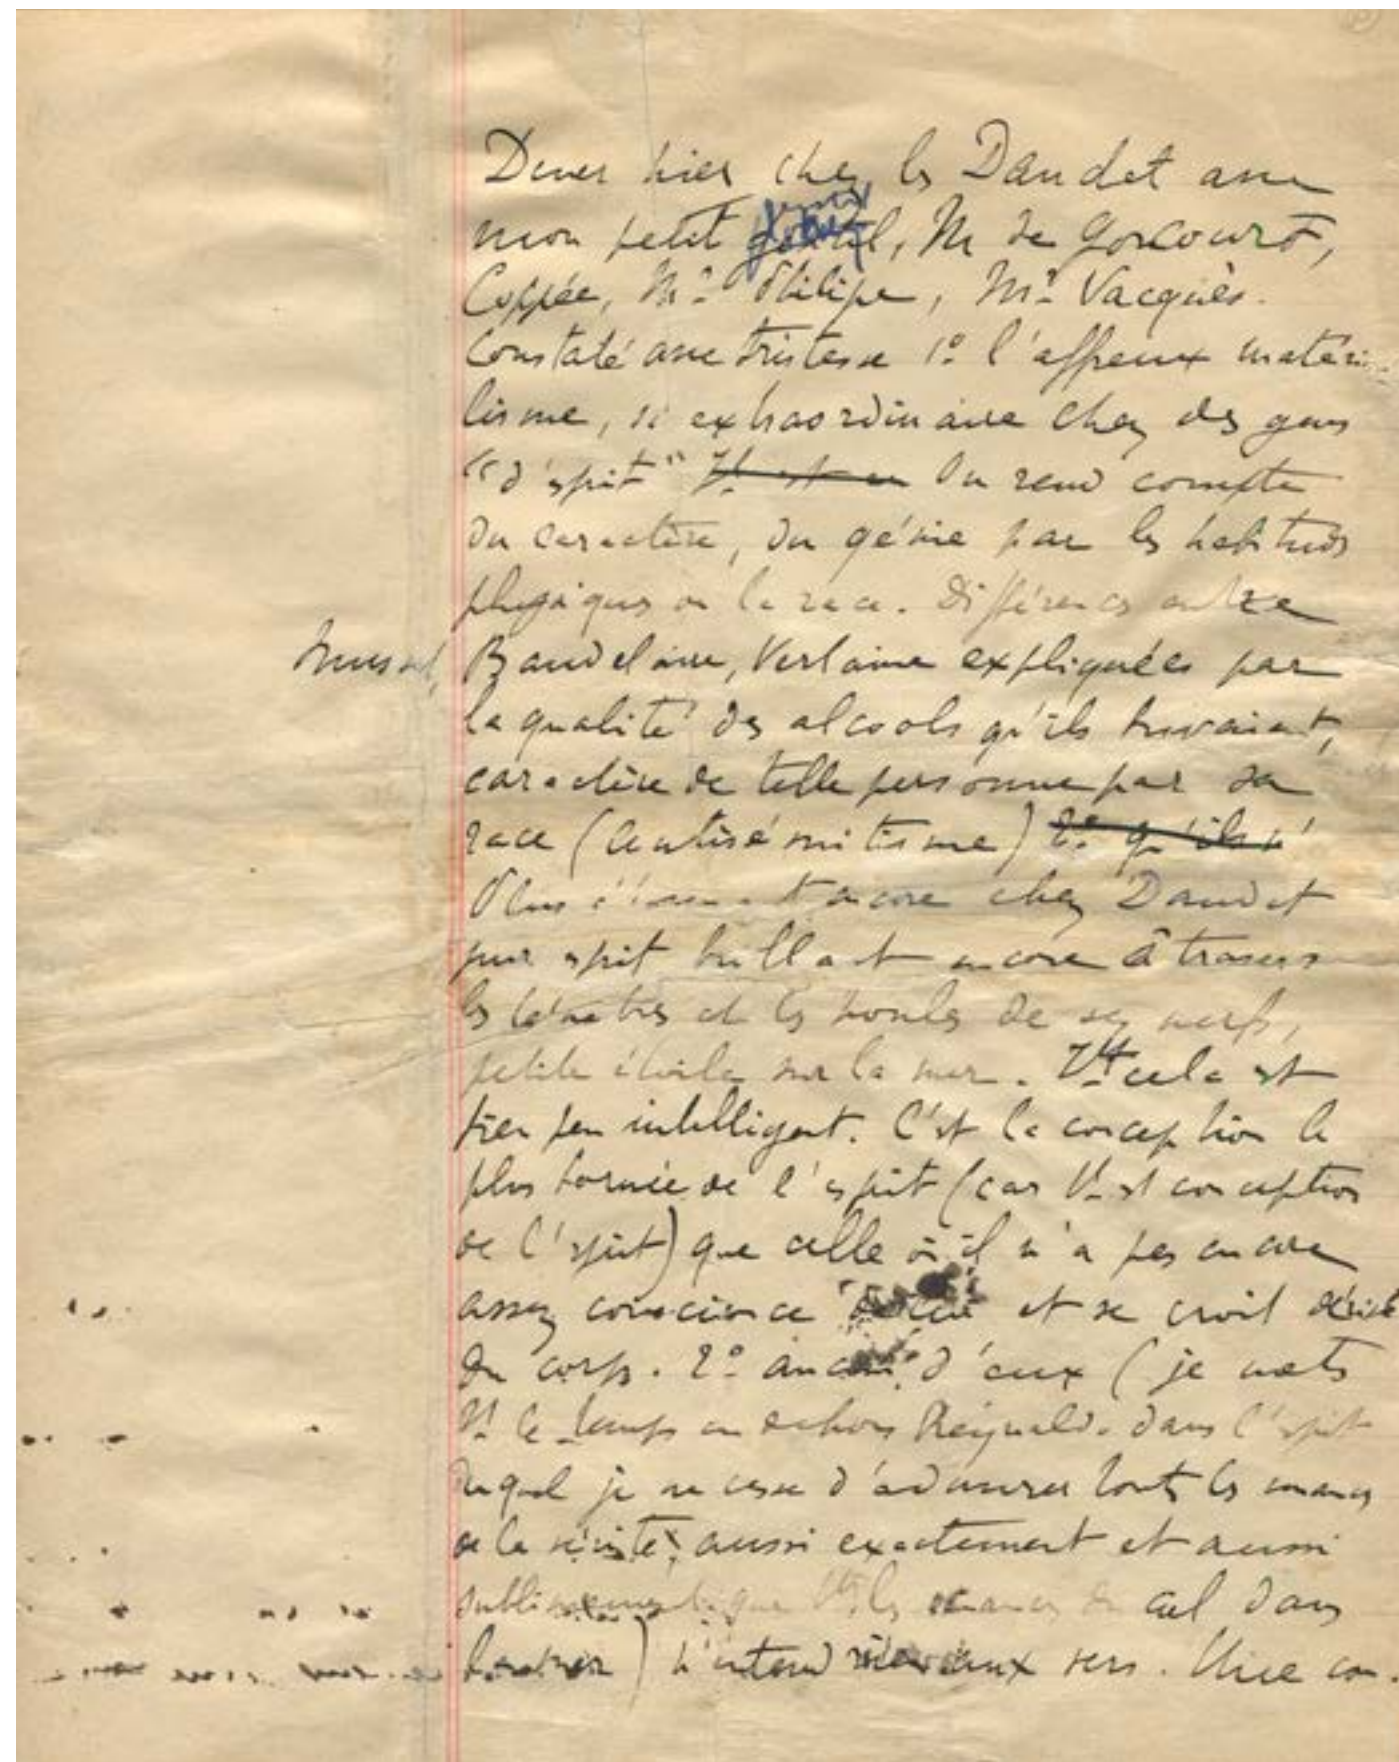 Diner hier chez les Daudet avec
mon petit genial, M de Goncourt,
Coppée, Mr Philipe, Mr Vacquès.
Constaté avec tristesse 1º l'affreux matéria-
lisme, si extraordinaire chez des gens
"d'esprit" On rend compte
du caractère, du génie par les habitudes
physiques ou la race. Différences entre
Musset, Baudelaire, Verlaine expliquées par
la qualité des alcools qu'ils buvaient,
caractère de telle personne par sa
race (antisémitisme) 2º qu'ils n'
Plus étonnant encore chez Daudet
pur esprit brillant encore à travers
les ténèbres et les houles de ses nerfs,
petite étoile sur la mer. Tt cela est
bien peu intelligent. C'est la conception la
plus bornée de l'esprit (car Tt est conception
de l'esprit) que celle où il n'a pas encore
assez conscience et se croit dérivé
du corps. 2º aucun d'eux (je mets
Tt le temps en dehors Reynaldo dans l'esprit
duquel je ne cesse d'admirer toutes les nuances
de la vérité, aussi exactement et aussi
sublimement que Ttes les nuances du ciel dans
la mer) n'entend rien aux vers. Une com-